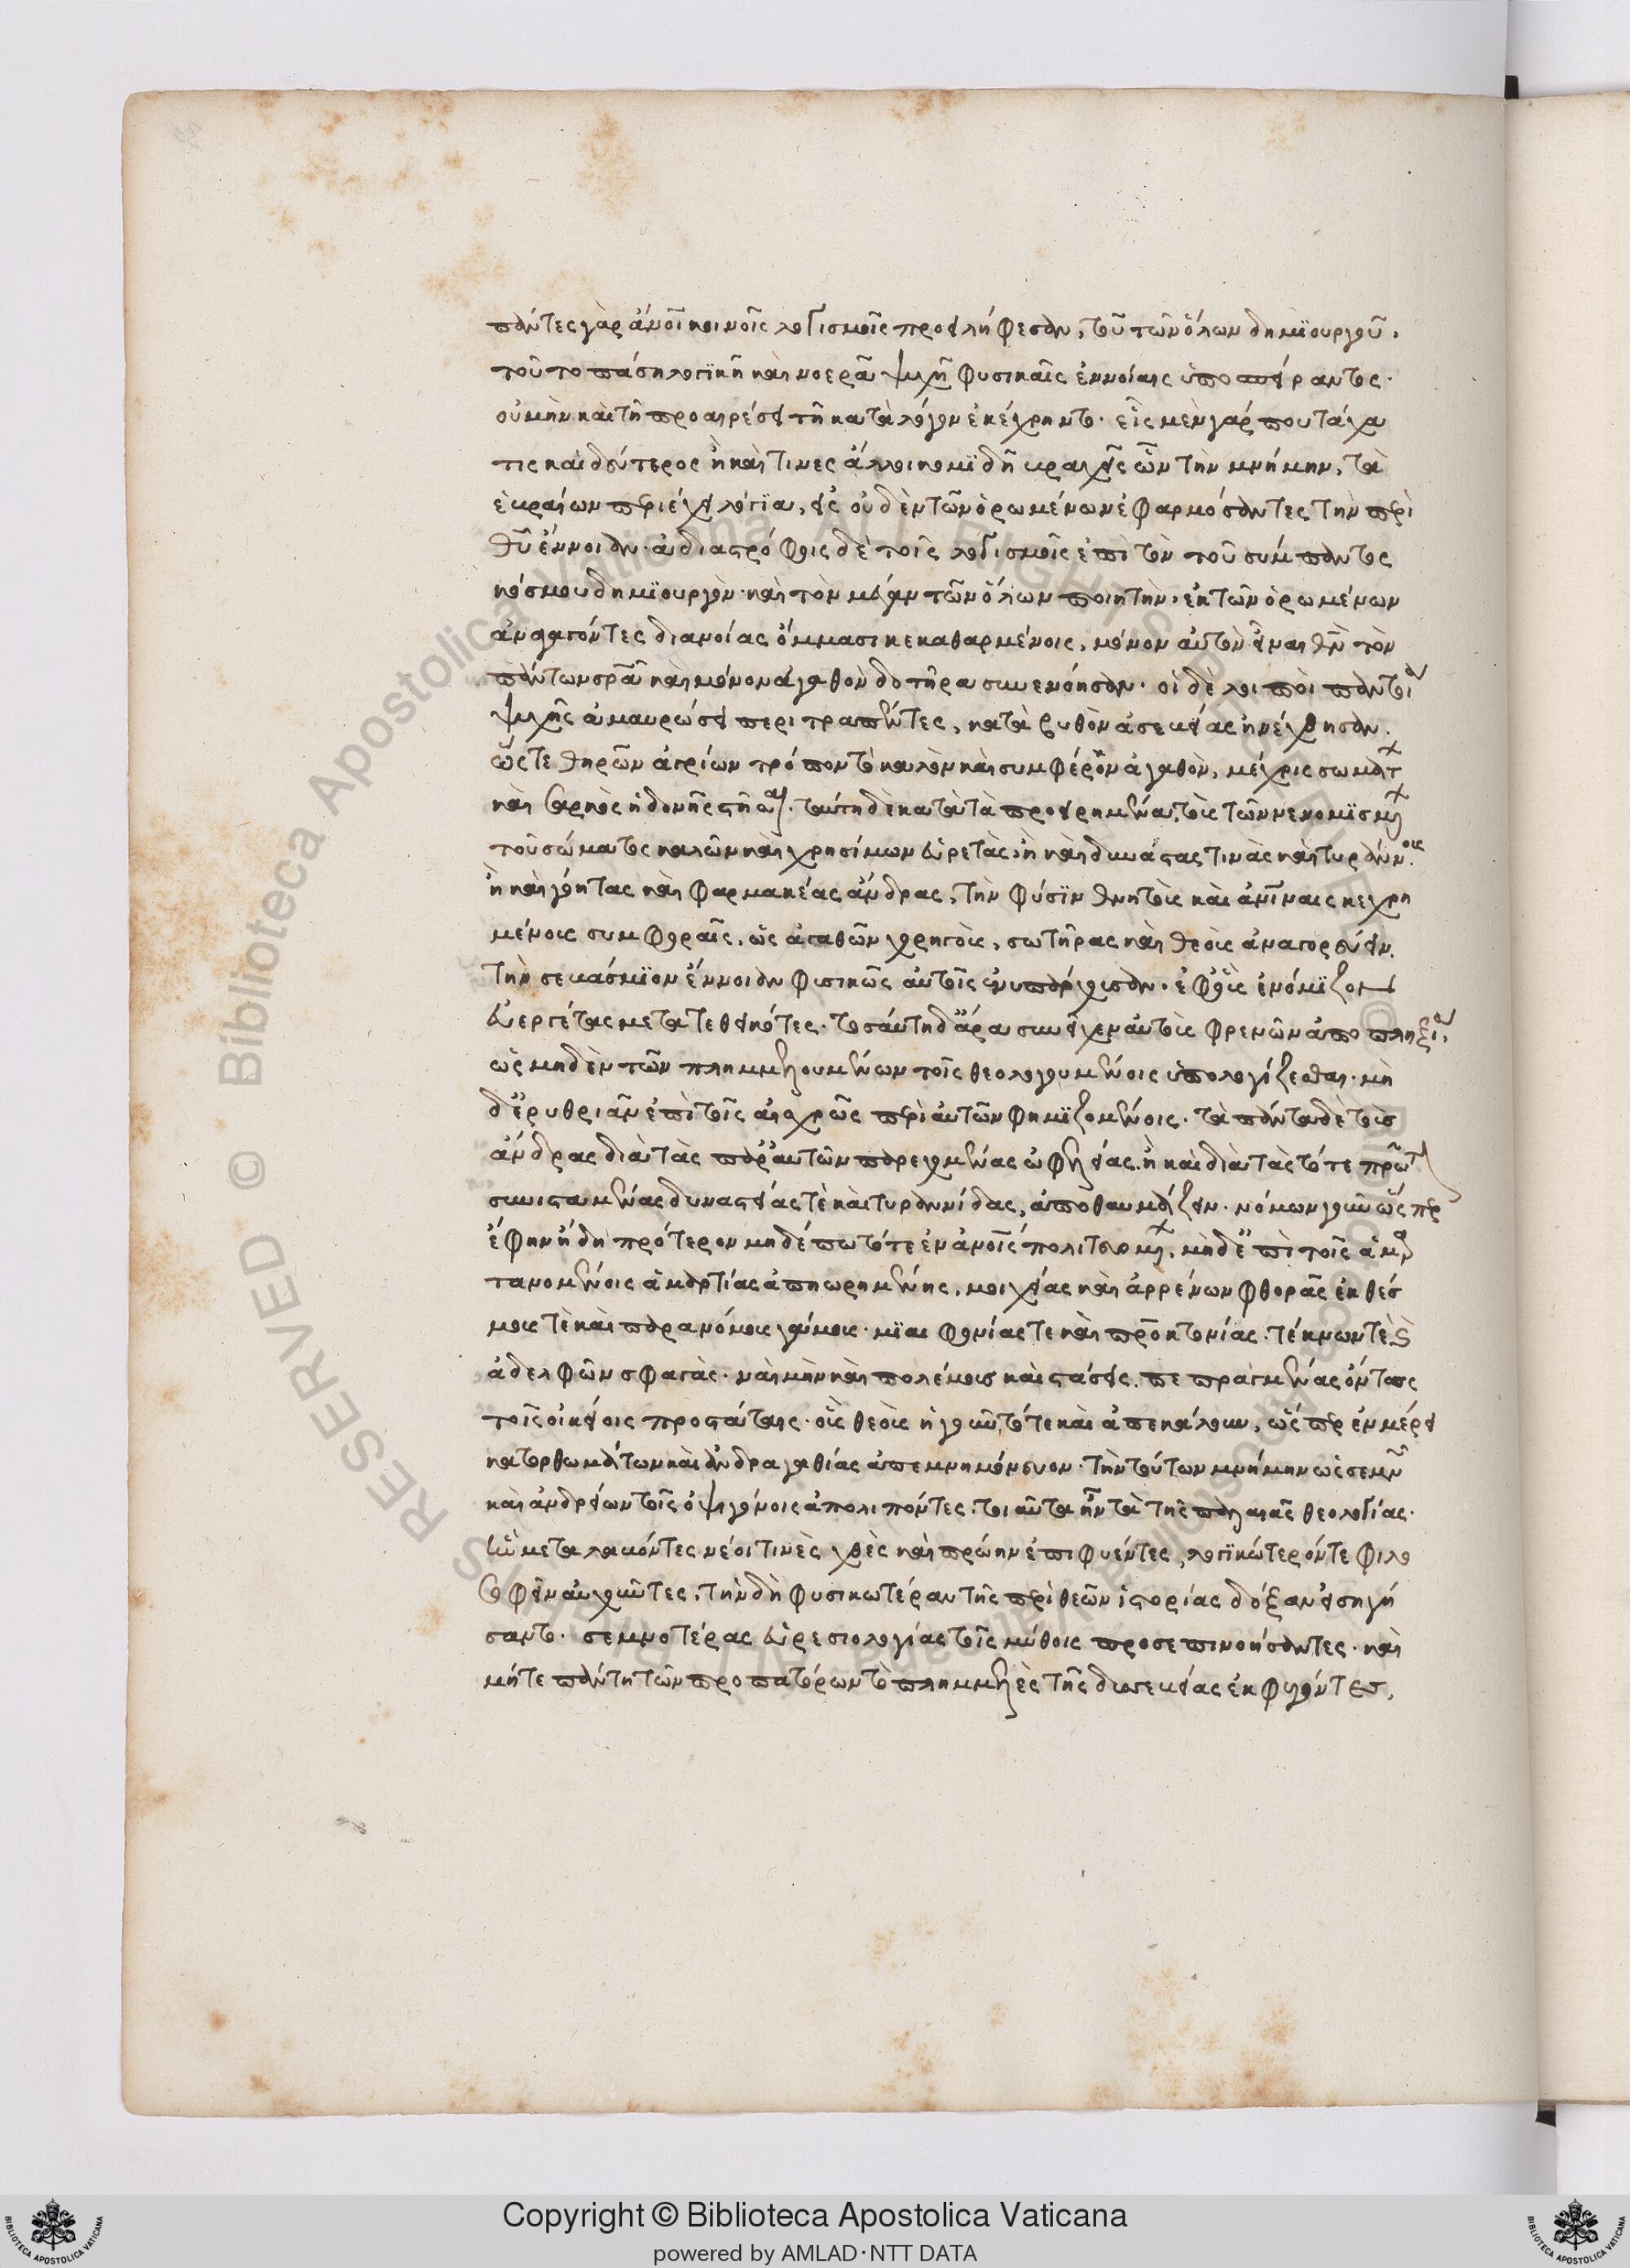 πάντες γὰρ ἄνοι κοινοῖς λογισμοῖς προσλήφεσαν, τοῦ τῶν ὅλων δημϊουργοῦ,
τοῦτο πάση λογϊκῆ καὶ νοερᾶ ψυχῆ φυσικαῖς ἐννοίαις ὑποσπείραντος·
οὐ μὴν καὶ τῆ προαιρέσει τῆ κατὰ λόγον ἐκέχρηντο· εἷς μὲν γάρ που τάχα
τις καὶ δεύτερος ἢ καί τινες ἄλλοι κομϊδῆ βραχεῖς ὧν τὴν μνήμην, τὰ
ἑβραίων περιέχει λόγϊα, εἰς οὐδὲν τῶν ὁρωμένων ἐφαρμόσαντες τὴν περὶ
θυ ἔννοιαν· ἀδιαστρόφοις δὲ τοῖς λογισμοῖς ἐπὶ τὸν τοῦ σύμπαντος
κόσμου δημϊουργὸν· καὶ τὸν μέγαν τῶν ὅλων ποιητὴν, ἐκ τῶν ὁρωμένων
ἀναγαγόντες διανοίας ὄμμασι κεκαθαρμένοις, μόνον αὐτὸν εἶναι θν τὸν
πάντων σρα καὶ μόνον ἀγαθὸν δοτῆρα συνενόησαν· οἱ δὲ λοιποὶ παντοία
ψυχῆς ἀμαυρώσει περιτραπέντες, κατὰ βυθὸν ἀσεβείας ἠνέχθησαν.
ὥστε θηρῶν ἀγρίων τρόπον τὸ καλὸν καὶ συμφέρον ἀγαθὸν, μέχρις σωματ
καὶ σαρκὸς ἡδονῆς στῆσαι. ταύτη δὲ κατὰ τὰ προειρημένα, τοὺς τῶν νενομϊσμ
τοῦ σώματος καλῶν καὶ χρησίμων εὑρετὰς, ἢ καὶ δυνάστας τινὰς καὶ τυράννους
ἢ καὶ γόητας καὶ φαρμακέας ἄνδρας, τὴν φύσϊν θνητοὺς καὶ ἀνίναις κεχρη
μένους συμφοραῖς, ὡς ἀγαθῶν χορηγοὺς, σωτῆρας καὶ θεοὺς ἀναγορεύειν.
τὴν σεβάσμϊον ἔννοιαν φυσικῶς αὐτοῖς ἐνυπάρχουσαν, ἐφ οὓς ἐνόμϊζον
εὐεργέτας μετατεθεικότες· τοσαύτη δ ἄρα συνεῖχεν αὐτοὺς φρενῶν ἀποπληξία,
ὡς μηδὲν τῶν πλημμελουμένων τοῖς θεολογουμένοις ὑπολογίζεσθαι· μὴ
δ ἐρυθριᾶν ἐπὶ τοῖς αἰσχρῶς περὶ αὐτῶν φημϊζομένοις· τὰ πάντα δὲ τοὺς
ἄνδρας διὰ τὰς παρ αὐτῶν παρεχομένας ὠφελείας. ἢ καὶ διὰ τὰς τότε πρῶτ
συνισταμένας δυναστείας τὲ καὶ τυραννίδας, ἀποθαυμάζειν· νόμων γοῦν ὥσπερ
ἔφην ἤδη πρότερον μηδέπω τότε ἐν ἀνοις πολιτευομ, μὴ δ ἐπὶ τοῖς ἁμαρ
τανομένοις ἁμαρτίας ἀπηωρημένης, μοιχείας καὶ ἀρρένων φθορᾶς ἐκθέσ
μους τὲ καὶ παρανόμους γάμους· μϊαιφονίας τε καὶ προκτονίας· τέκνων τὲ
ἀδελφῶν σφαγὰς· ναὶ μὴν καὶ πολέμους καὶ στάσεις, πεπραγμένας ὄντως
τοῖς οἰκείοις προστάταις· οὓς θεοὺς ἡγοῦντό τε καὶ ἀπεκάλουν, ὥσπερ ἐν μέρει
κατορθωμάτων καὶ ἀνδραγαθίας ἀπεμνημόνευον· τὴν τούτων μνήμην ὡς σεμν
καὶ ἀνδρείων τοῖς ὀψιγόνοις ἀπολιπόντες· τοιαῦτα ἦν τὰ τῆς παλαιᾶς θεολογίας·
ἣν μεταβαλόντες νέοι τινὲς χθὲς καὶ πρώην ἐπιφυέντες, λογϊκώτερόν τε φιλο
σοφεῖν αὐχοῦντες, τὴν δὴ φυσικωτέραν τῆς περὶ θεῶν ἱστορίας δόξαν εἰσηγή
σαντο· σεμνοτέρας εὑρεσιολογίας τοῖς μύθοις προσεπινοήσαντες· καὶ
μήτε πάντη τῶν προπατόρων τὸ πλημμελὲς τῆς δυσσεβείας ἐκφυγόντες,